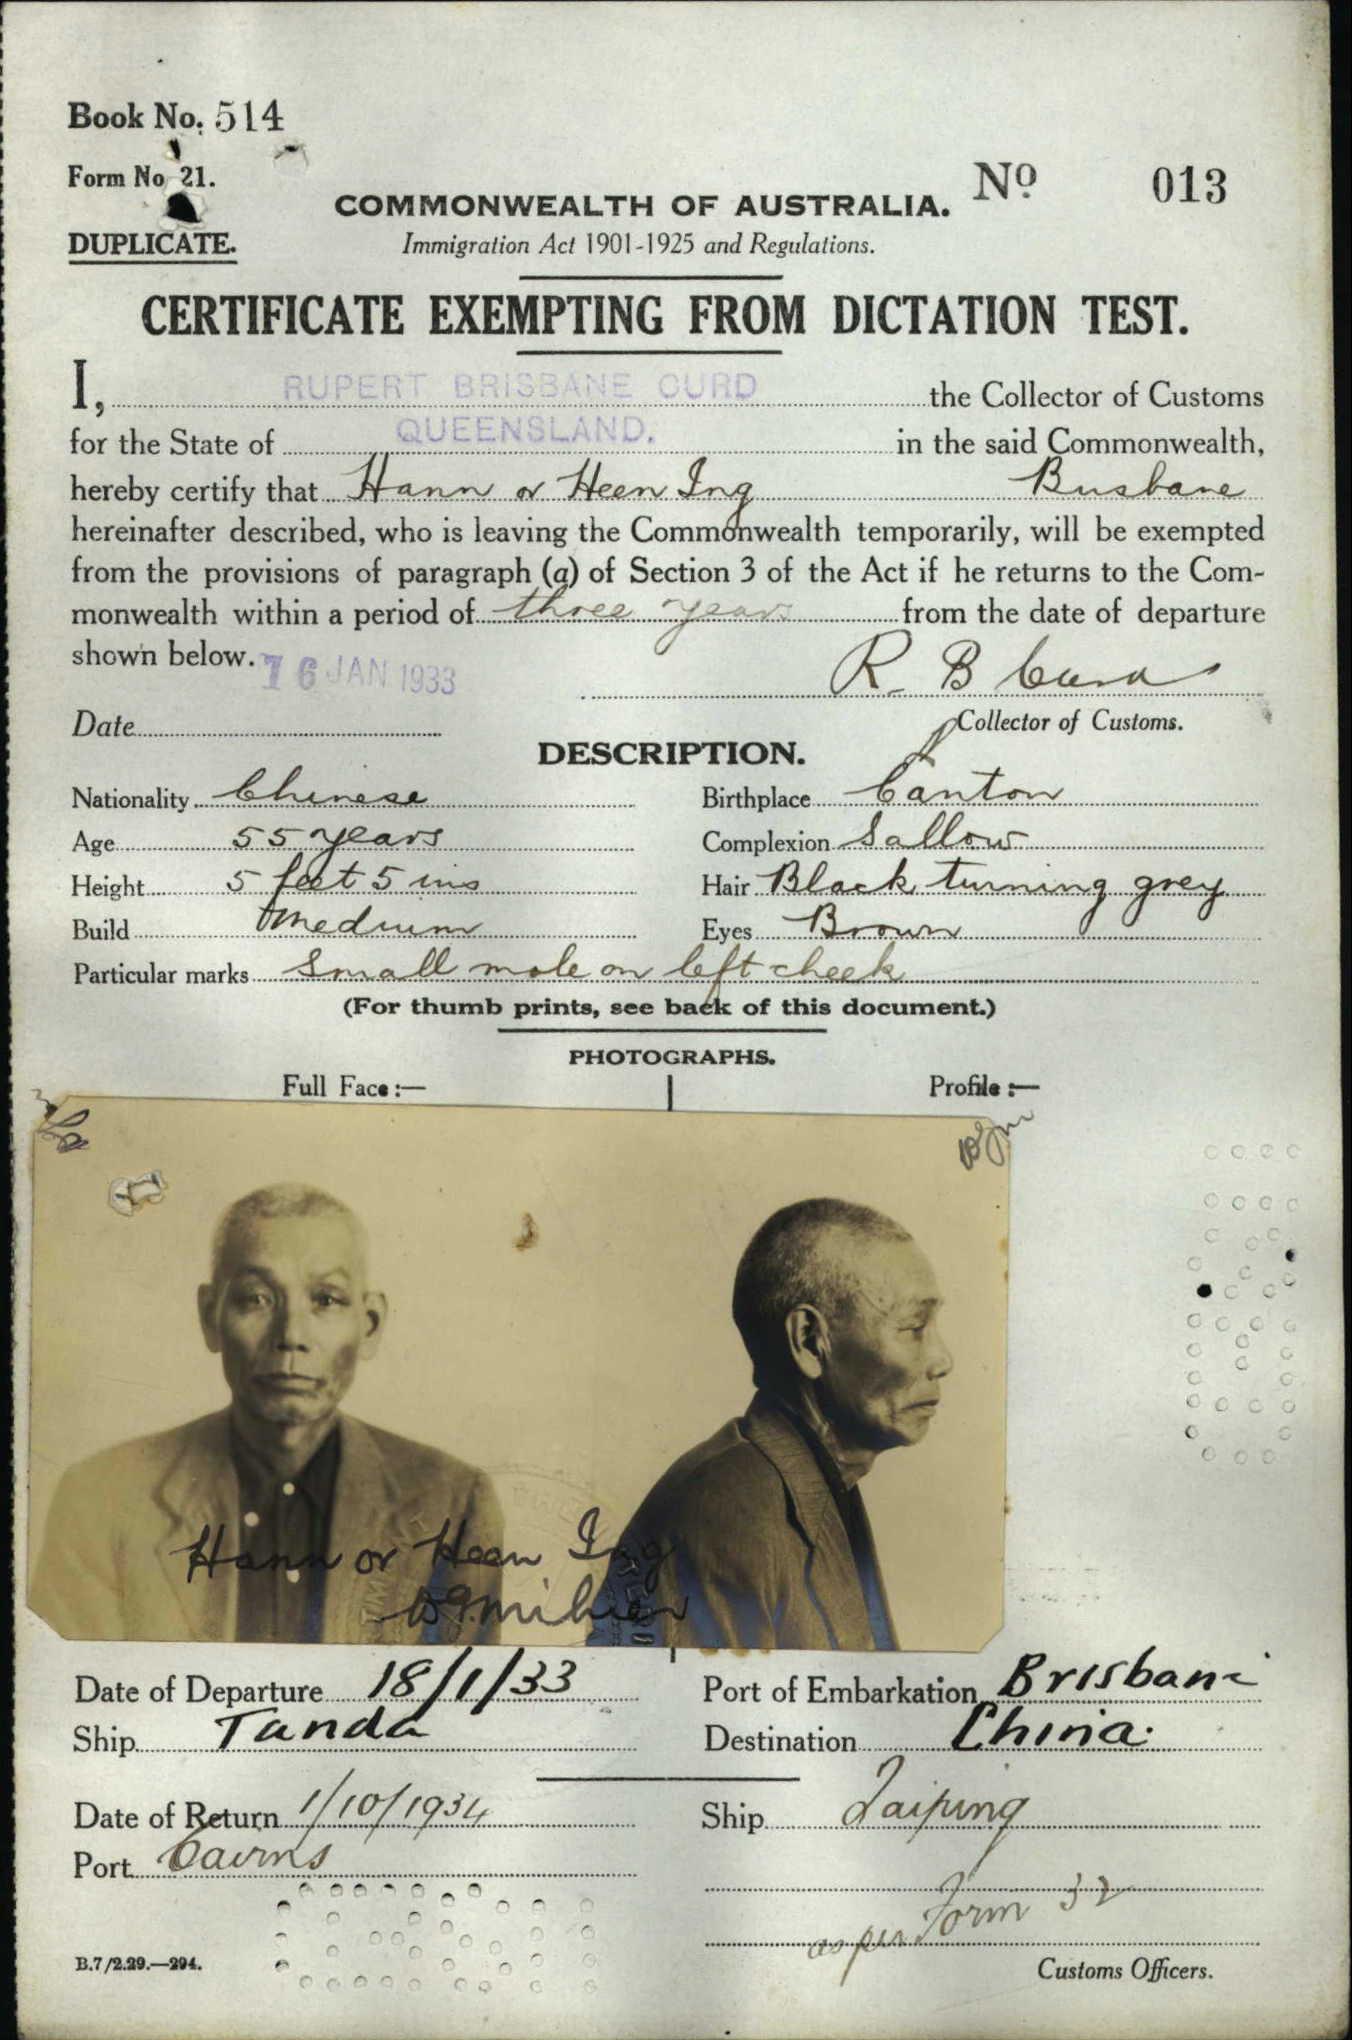 Book No. 514
Form No 21.
Nº 013
COMMONWEALTH OF AUSTRALIA.
DUPLICATE.
Immigration Act 1901-1925 and Regulations.
CERTIFICATE EXEMPTING FROM DICTATION TEST.
I, RUPERT BRISBANE CURD the Collector of Customs
for the State of QUEENSLAND. in the said Commonwealth,
hereby certify that Hann or Heen Ing Brisbane
hereinafter described, who is leaving the Commonwealth temporarily, will be exempted
from the provisions of paragraph (a) of Section 3 of the Act if he returns to the Com-
monwealth within a period of three years from the date of departure
shown below.
16 JAN 1933
R. B Curd
Date
Collector of Customs.
DESCRIPTION.
Nationality Chinese Birthplace Canton
Age 55 years Complexion Sallow
Height 5 feet 5 ins Hair Black turning grey
Build Medium Eyes Brown
Particular marks Small mole on left cheek
(For thumb prints, see back of this document.)
PHOTOGRAPHS.
Full Face:— Profile:—
Hann or Heen Ing
Date of Departure 18/1/33 Port of Embarkation Brisbane
Ship Tanda Destination China.
Date of Return 1/10/1934 Ship Taiping
Port Cairns
as per Form 32
B.7/2.29.—294.
Customs Officers.